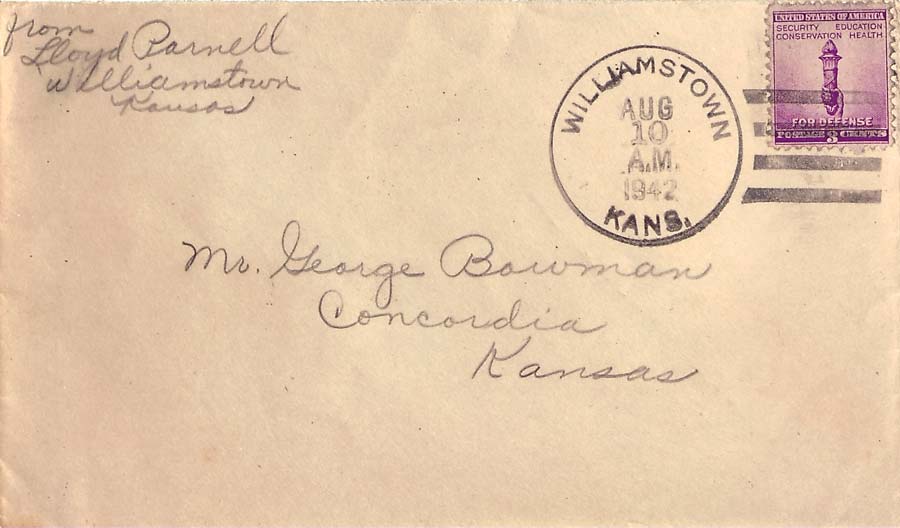 from
Lloyd Parnell
Williamstown
Kansas
WILLIAMSTOWN
AUG
10
A.M.
1942
KANS.
UNITED STATES OF AMERICA
SECURITY EDUCATION
CONSERVATION HEALTH
FOR DEFENSE
POSTAGE 3 CENTS
Mr. George Bowman
Concordia
Kansas